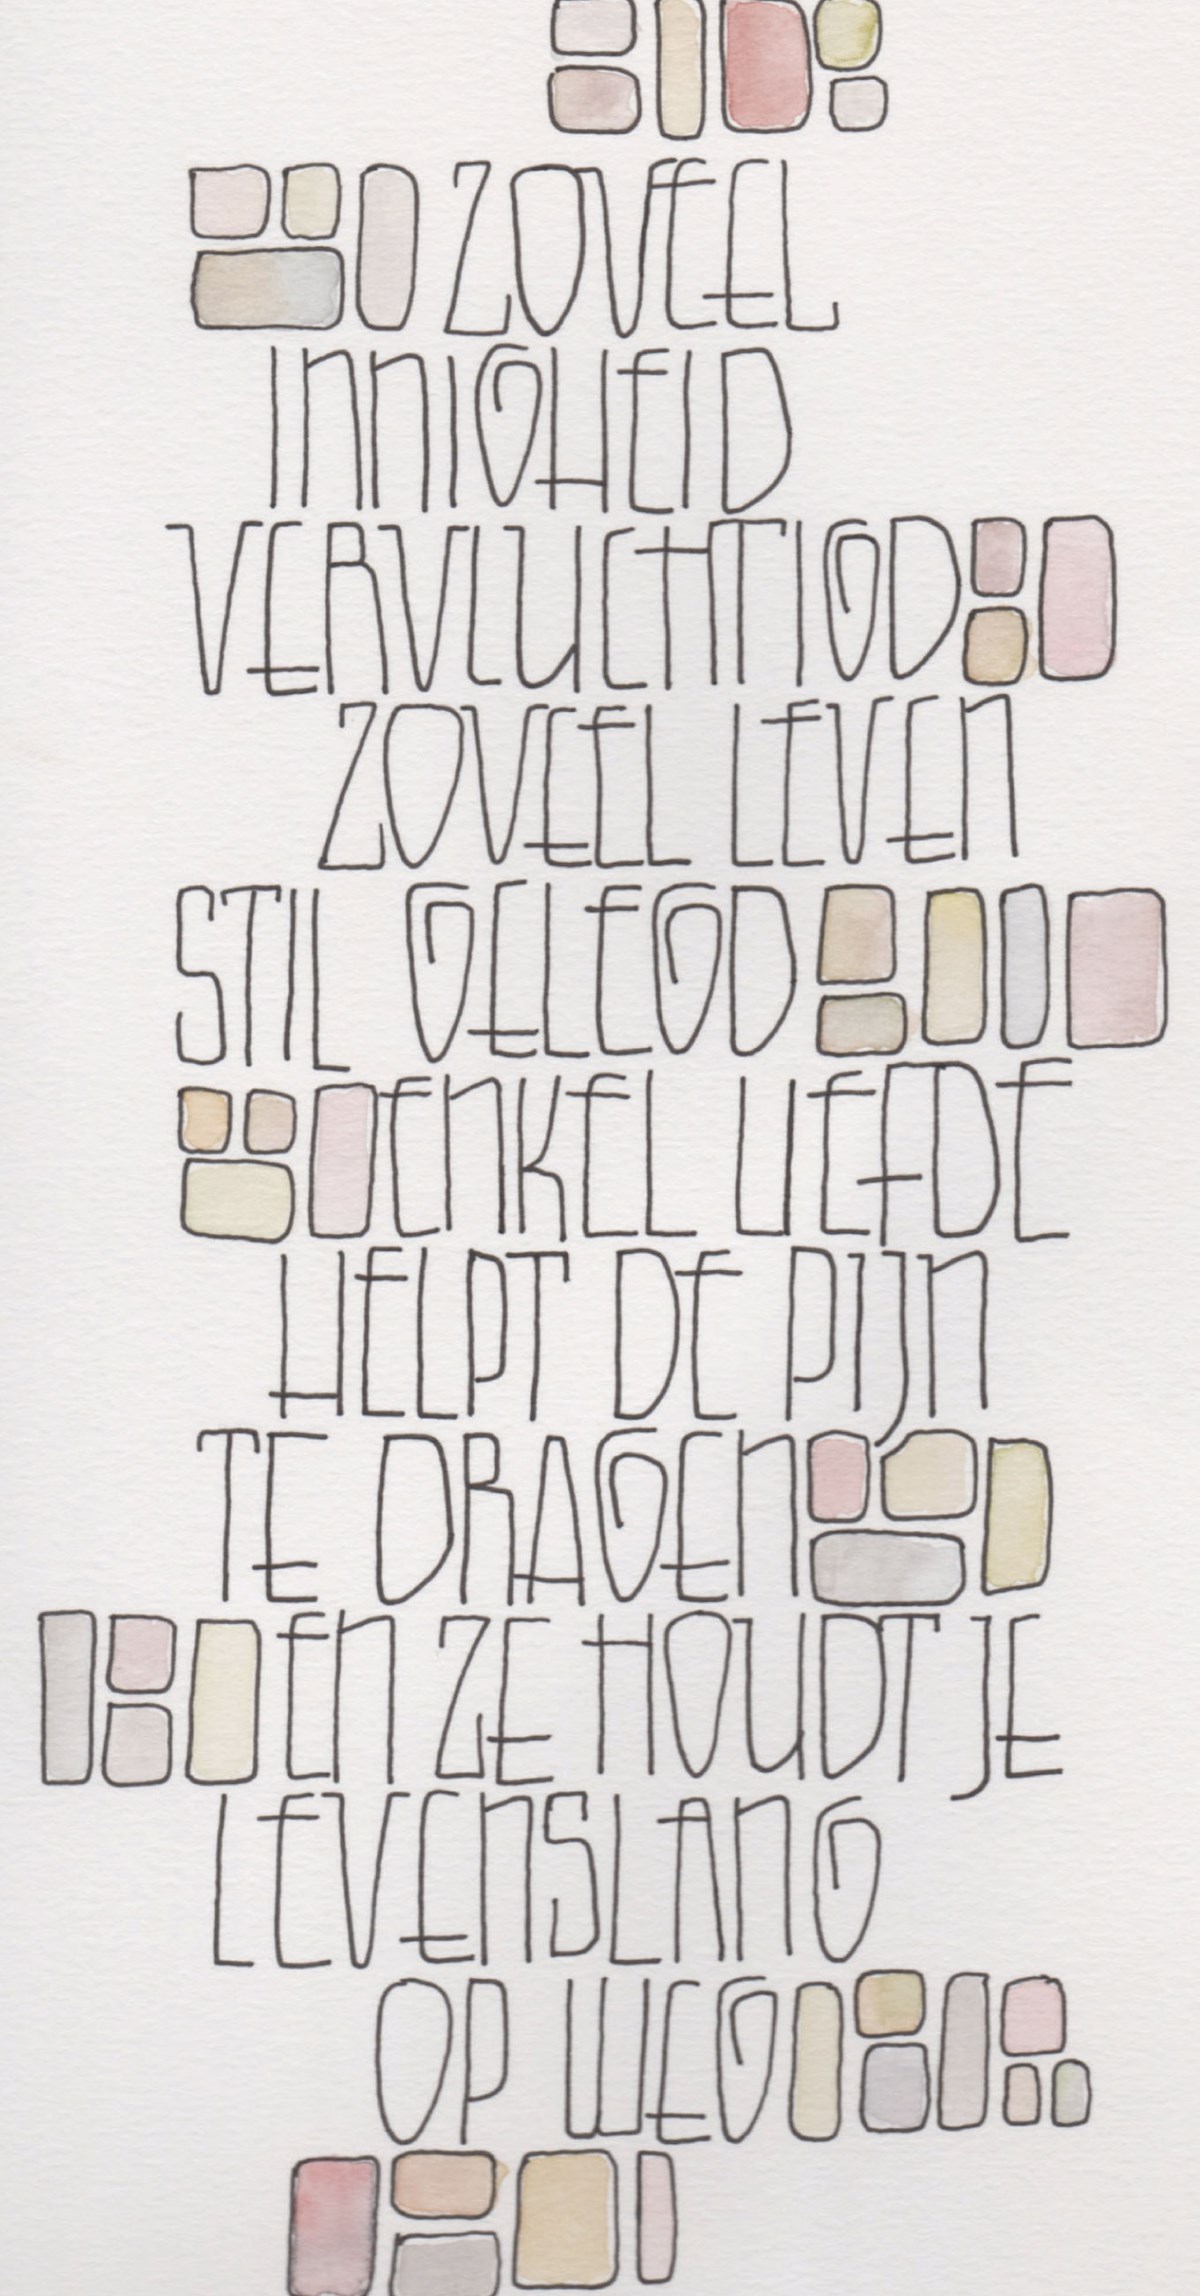 ZOVEEL
INNIGHEID
VERVLUCHTIGD
ZOVEEL LEVEN
STIL GELEGD
ENKEL LIEFDE
HELPT DE PIJN
TE DRAGEN
EN ZE HOUDT JE
LEVENSLANG
OP WEG